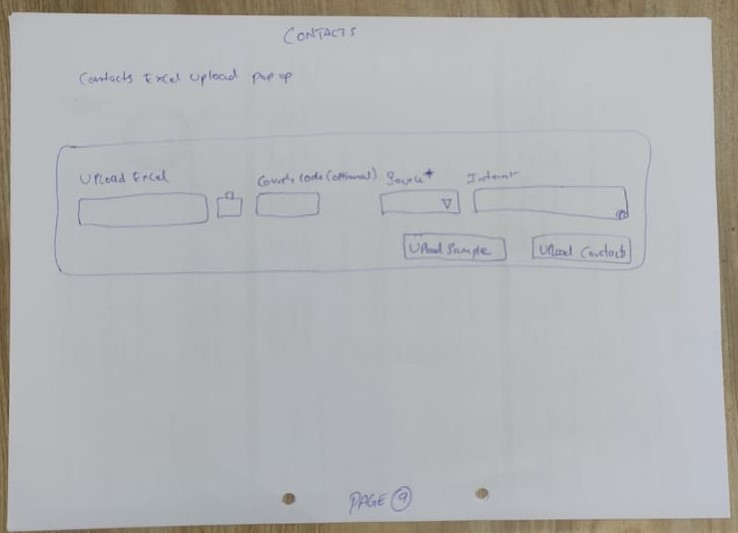 CONTACTS
Contacts Excel Upload pop up
Upload Excel
Country Code (optional)
Source*
Upload Sample
Upload Contacts
PAGE 9